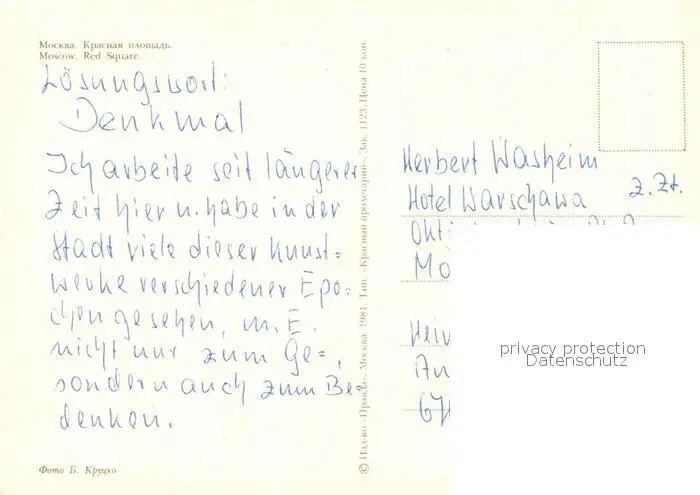 Москва. Красная площадь.
Moscow. Red Square.
Lösungswort:
Denkmal
Ich arbeite seit längerer
Zeit hier u. habe in der
Stadt viele dieser Kunst=
werke verschiedener Epo=
chen gesehen, m. E.
nicht nur zum Ge=,
sondern auch zum Be=
denken.
Фото Б. Круцко
© Изд-во «Правда», Москва. 1981. Тип. «Красный пролетарий». Зак. 1123. Цена 10 коп.
Herbert Washeim
z. Zt.
Hotel Warschawa
Mo
Hei
An
67
privacy protection
Datenschutz